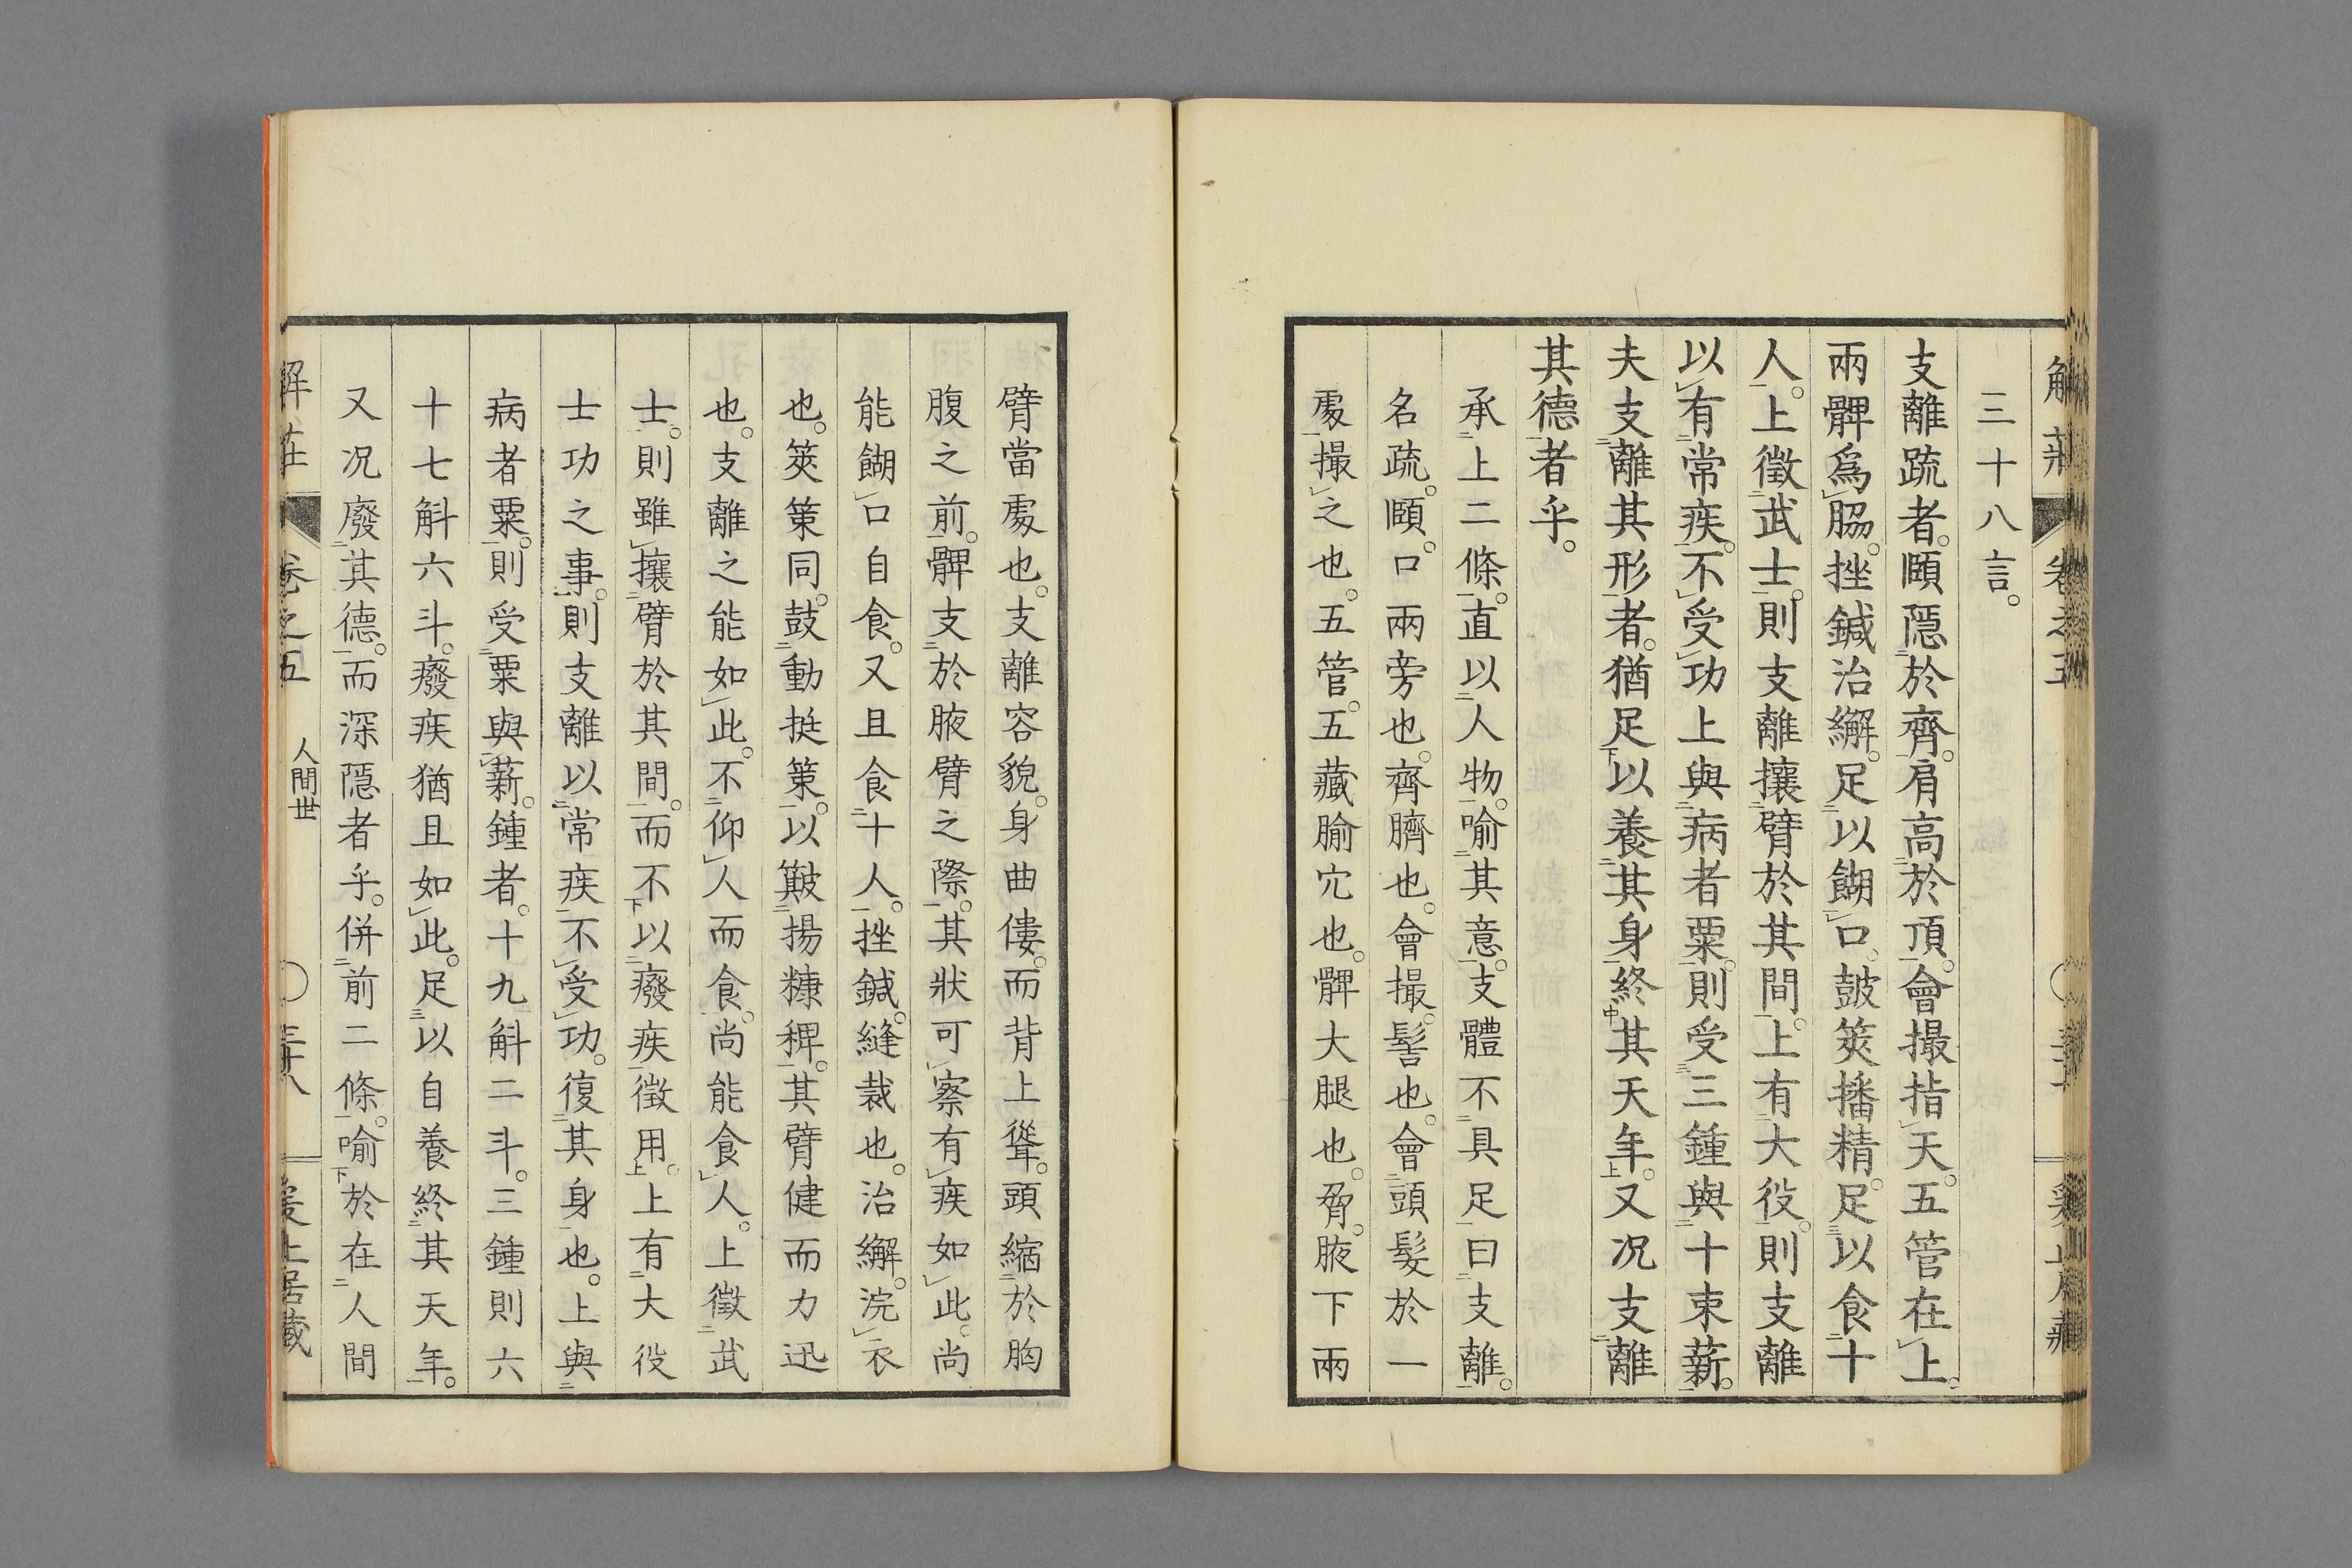 三十八言。
支離疏者。頤隱於齊。肩高於頂。會撮指天。五管在上。
兩髀爲脇。挫鍼治繲。足以餬口。鼓筴播精。足以食十
人。上徵武士。則支離攘臂於其間。上有大役。則支離
以有常疾。不受功上與病者粟。則受三鍾與十束薪。
夫支離其形者。猶足以養其身終其天年。又况支離
其德者乎。
承上二條。直以人物喻其意。支體不具足曰支離。
名疏。頤。口兩旁也。齊臍也。會撮。髻也。會頭髮於一
處撮之也。五管。五藏腧穴也。髀大腿也。脅。腋下兩
臂當處也。支離容貌。身曲僂。而背上聳。頭縮於胸
腹之前。髀支於腋臂之際。其狀可察有疾如此。尚
能餬口自食。又且食十人。挫鍼。縫裁也。治繲。浣衣
也。筴策同。鼓動挺策。以簸揚糠稗。其臂健而力迅
也。支離之能如此。不仰人而食。尚能食人。上徵武
士。則雖攘臂於其間。而不以癈疾徵用。上有大役
士功之事。則支離以常疾不受功。復其身也。上與
病者粟。則受粟與薪。鍾者。十九斛二斗。三鍾則六
十七斛六斗。癈疾猶且如此。足以自養終其天年。
又况廢其德。而深隱者乎。併前二條。喻於在人間
解莊 卷之五 人間世 〇 三十八